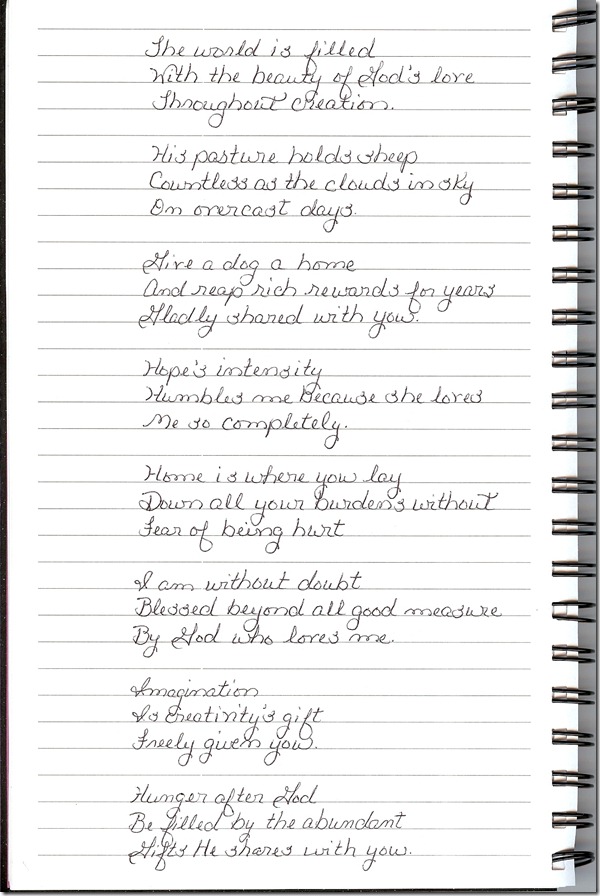 The world is filled
With the beauty of God's love
Throughout Creation.
His pasture holds sheep
Countless as the clouds in sky
On overcast days.
Give a dog a home
And reap rich rewards for years
Gladly shared with you.
Hope's intensity
Humbles me because she loves
Me so completely.
Home is where you lay
Down all your burdens without
Fear of being hurt
I am without doubt
Blessed beyond all good measure
By God who loves me.
Imagination
Is Creativity's gift
Freely given you.
Hunger after God
Be filled by the abundant
Gifts He shares with you.